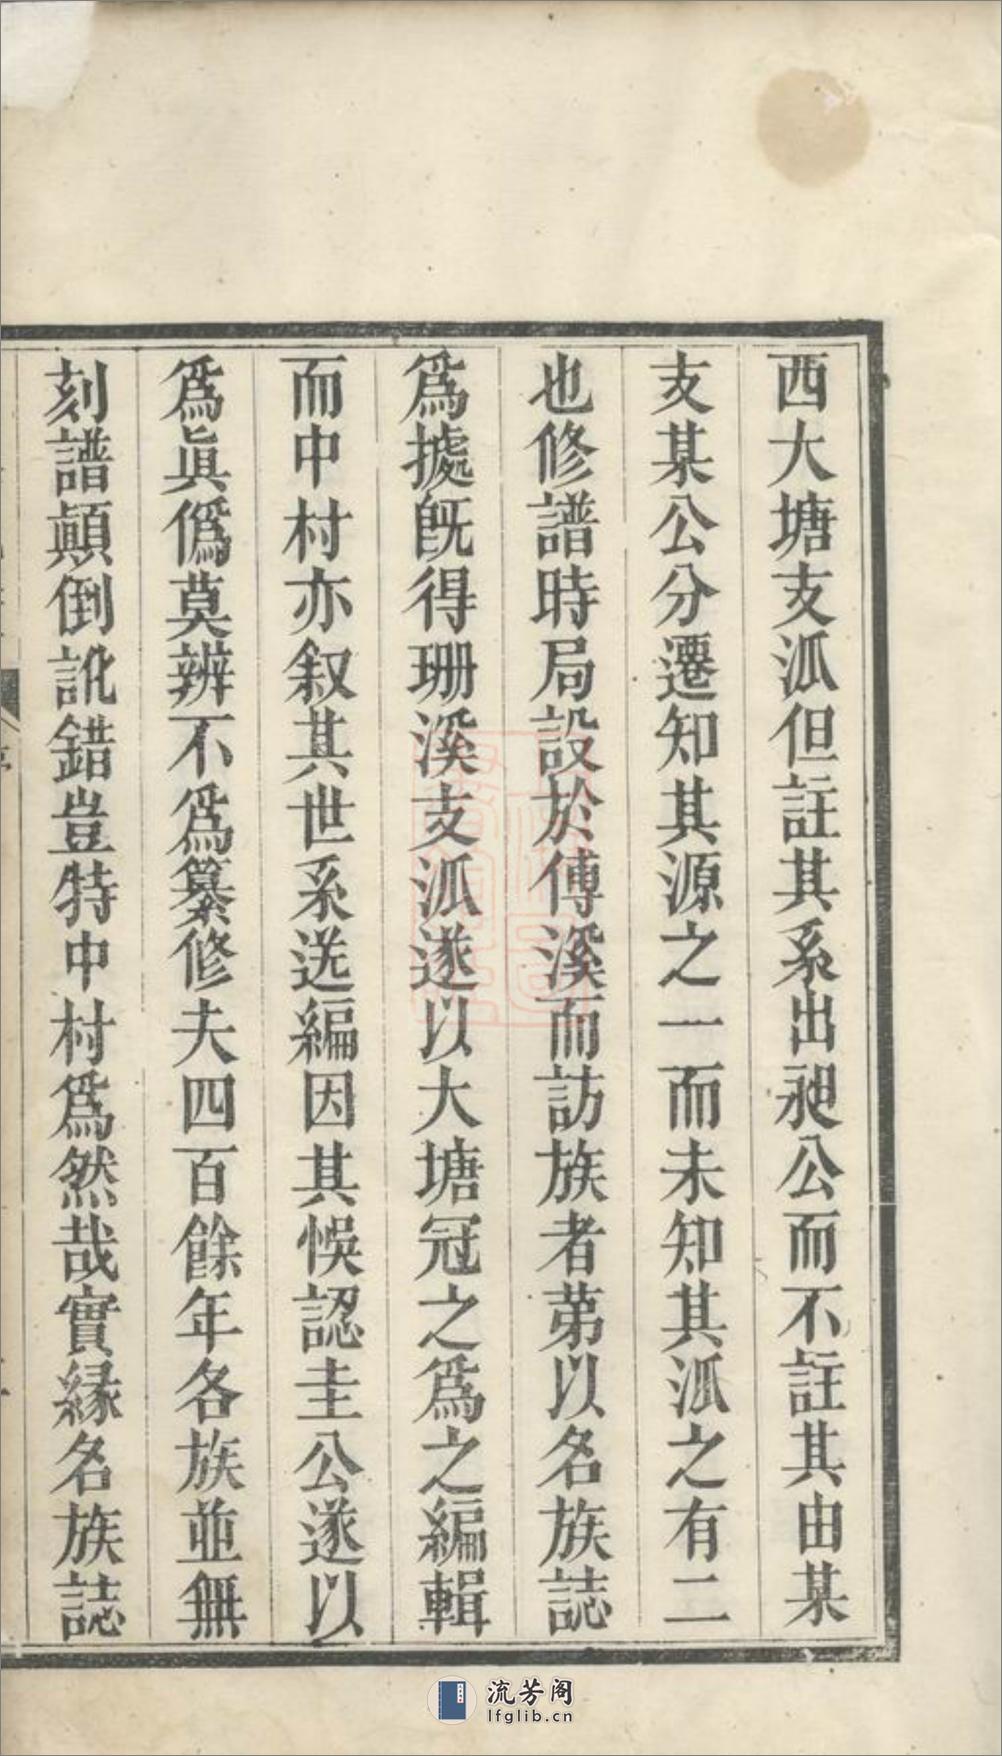 西大塘支泒但註其系出昶公而不註其由某
支某公分遷知其源之一而未知其泒之有二
也修譜時局設於傅溪而訪族者苐以名族誌
爲據旣得珊溪支泒遂以大塘冠之爲之編輯
而中村亦叙其世系送編因其悞認圭公遂以
爲眞僞莫辨不爲纂修夫四百餘年各族並無
刻譜顚倒訛錯豈特中村爲然哉實緣名族誌
流芳阁
lfglib.cn